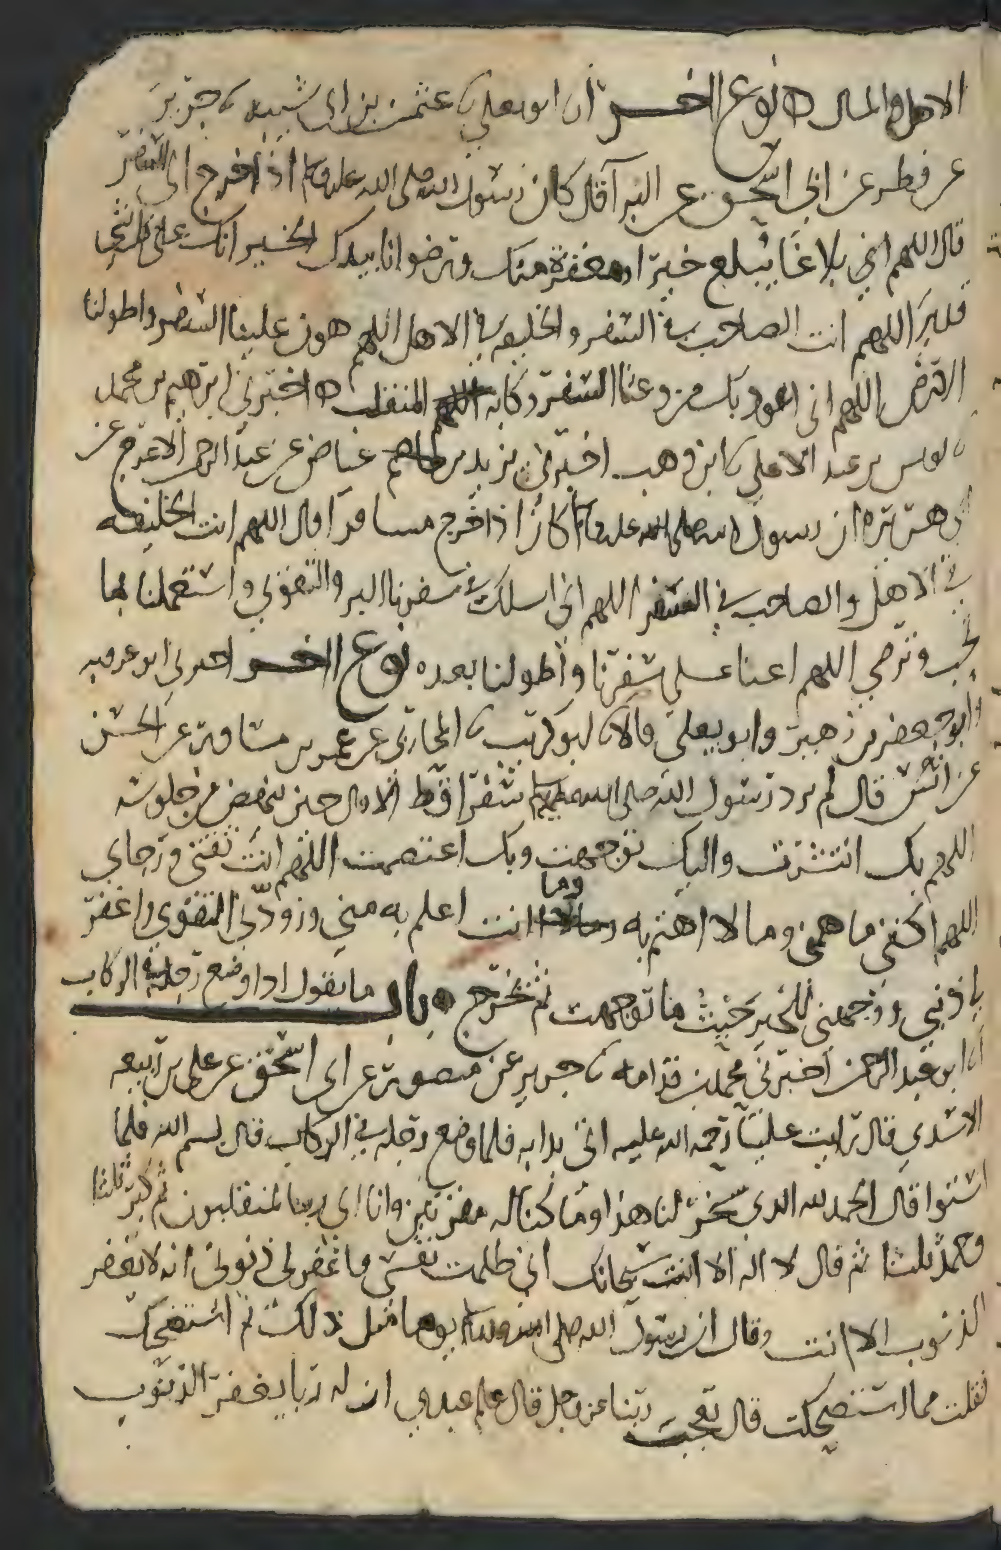 الاهل والمال ه نوع اخــر انا ابو يعلى ثنا عثمن بن ابى شيبه ثنا جرير
عن فطر عن ابي اسحق عن البرآ قال كان رسول الله صلى الله عليه وسلم اذا خرج الى السفر
قال اللهم بلاغا يبلغ خيرا ومغفرة منك ورضوانا بيدك الخير انك على كل شي
قدير اللهم انت الصاحب في السفر والخليفه في الاهل اللهم هون علينا السفر واطو لنا
الارض اللهم انى اعوذ بك من وعثا السفر وكابه المنقلب ه اخبرني ابرهيم بن محمد
ثنا يونس بن عبد الاعلى ثنا ابن وهب اخبرني يزيد بن عياض عن عبد الرحمن الاعرج عن
ابى هريره ان رسول الله صلى الله عليه وسلم كان اذا خرج مسافرا قال اللهم انت الخليفه
في الاهل والصاحب في السفر اللهم انى اسلك في سفرنا البر والتقوى واستعملنا بما
تحب وترضي اللهم اعنا على سفرنا واطو لنا بعده نوع اخــر اخبرني ابو عروبه
وابو جعفر بن زهير وابو يعلى قالا ثنا ابو كريب ثنا المحاربى عن عمر بن مساور عن الحسن
عن انس قال لم يرد رسول الله صلى الله عليه وسلم سفرا قط الا قال حين ينهض من جلوسه
اللهم بك انتشرت واليك توجهت وبك اعتصمت اللهم انت ثقتي ورجاي
اللهم اكفني ما همني وما لا اهتم به وما انت اعلم به مني وزودني التقوى واغفر
لي ذنبي ووجهني للخير حيث ما توجهت ثم يخرج ه باب ما يقول اذا وضع رجله في الركاب
انا ابو عبد الرحمن اخبرني محمد بن قدامه ثنا جرير عن منصور عن ابى اسحق عن على بن ربيعه
الاسدي قال رايت عليا رحمه الله عليه اتى بدابه فلما وضع رجله في الركاب قال بسم الله فلما
استوا قال الحمد لله الذي سخر لنا هذا وما كنا له مقرنين وانا الى ربنا لمنقلبون ثم كبر ثلثا
وحمد ثلثا ثم قال لا اله الا انت سبحانك انى ظلمت نفسي فاغفر لى ذنوبى انه لا يغفر
الذنوب الا انت وقال ان رسول الله صلى الله عليه وسلم يوما مثل ذلك ثم استضحك
فقلت مما استضحكت قال تعجب ربنا عز وجل قال علم عبدي ان له ربا يغفر الذنوب